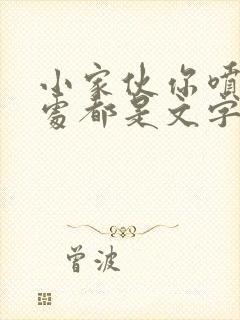 小家伙你喷
处都是文字
曾波